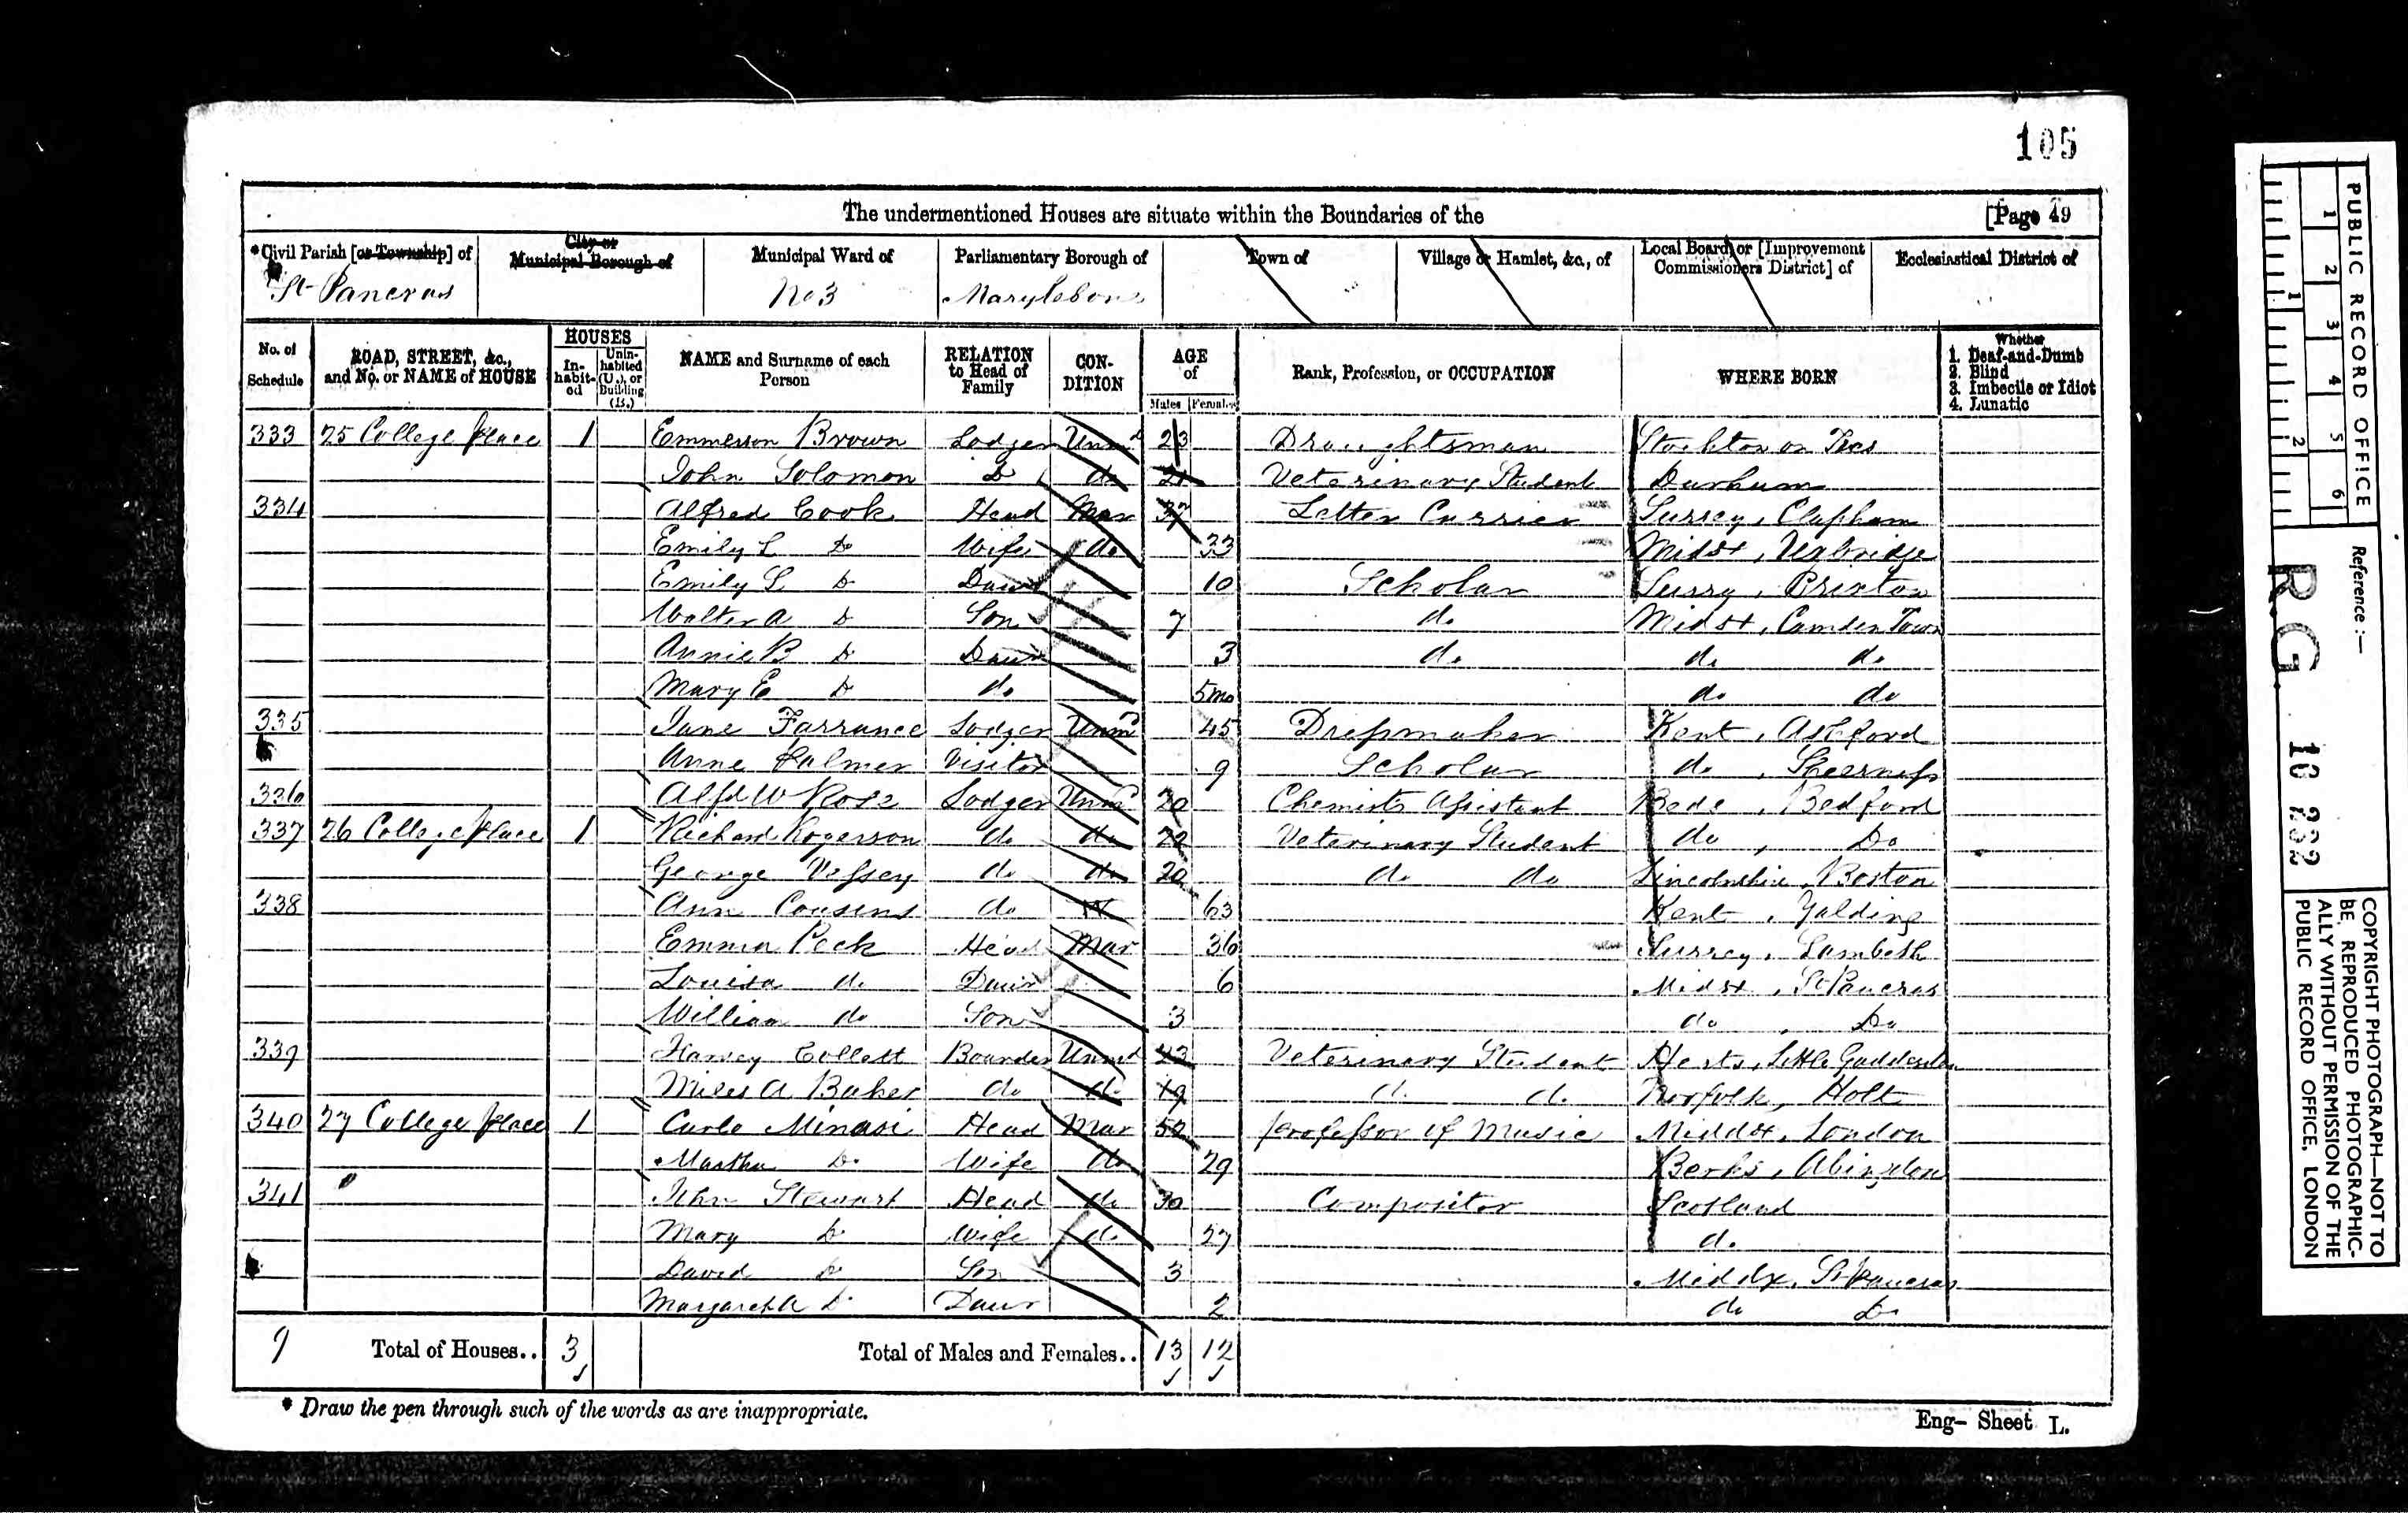 105
The undermentioned Houses are situate within the Boundaries of the [Page 49
*Civil Parish [or Township] of City or Municipal Borough of Municipal Ward of Parliamentary Borough of Town of Village or Hamlet, &c., of Local Board, or [Improvement Commissioners District] of Ecclesiastical District of
St Pancras No 3 Marylebone
No. of Schedule ROAD, STREET, &c., and No. or NAME of HOUSE HOUSES In-habit-ed Unin-habited (U.), or Building (B.) NAME and Surname of each Person RELATION to Head of Family CON-DITION AGE of Males Females Rank, Profession, or OCCUPATION WHERE BORN Whether 1. Deaf-and-Dumb 2. Blind 3. Imbecile or Idiot 4. Lunatic
333 25 College place 1 Emmerson Brown Lodger Unmd 23 Draughtsman Stockton on Tees
John Solomon Do do 21 Veterinary Student Durham
334 Alfred Cook Head Mar 37 Letter Carrier Surrey, Clapham
Emily L Do Wife do 33 Midsx, Uxbridge
Emily S Do Daur 10 Scholar Surry, Brixton
Walter A Do Son 7 do Midsx, Camden Town
Annie B Do Daur 3 do do do
Mary E Do do 5mo do do
335 Jane Farrance Lodger Unmd 45 Dressmaker Kent, Ashford
Anne Palmer Visitor 9 Scholar do, Sheerness
336 Alfd W Lodger Unmd 20 Chemists Assistant Beds, Bedford
337 26 College place 1 Richard Rogerson do do 22 Veterinary Student do, Do
George Vessey do do 20 do do Lincolnshire, Boston
338 Ann Cousens do W 63 Kent, Yalding
Emma Peck Head Mar 36 Surrey, Lambeth
Louisa do Daur 6 Midsx, St Pancras
William do Son 3 do, Do
339 Harvey Collett Boarder Unmd 23 Veterinary Student Herts, Little Gaddesden
Miles A Baker do do 19 do do Norfolk, Holt
340 27 College place 1 Carlo Minasi Head Mar 52 professor of Music Middsx, London
Martha Do Wife do 29 Berks, Abingdon
341 " John Stewart Head do 30 Compositor Scotland
Mary Do Wife do 27 do
David Do Son 3 Middx, St Pancras
Margaret A Do Daur 2 do Do
9 Total of Houses.. 3 Total of Males and Females.. 13 12
* Draw the pen through such of the words as are inappropriate.
Eng- Sheet L.
PUBLIC RECORD OFFICE
1 2 3 4 5 6
1 2
Reference:-
R.G. 10 232
COPYRIGHT PHOTOGRAPH—NOT TO
BE REPRODUCED PHOTOGRAPHIC-
ALLY WITHOUT PERMISSION OF THE
PUBLIC RECORD OFFICE, LONDON